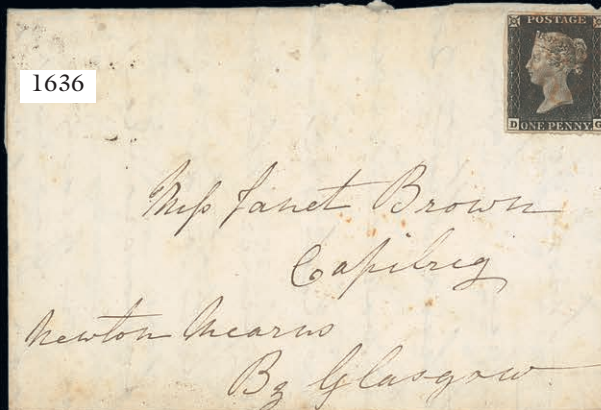 1636
POSTAGE
D ONE PENNY G
Miſs Janet Brown
Capilrig
Newton Mearns
By Glasgow